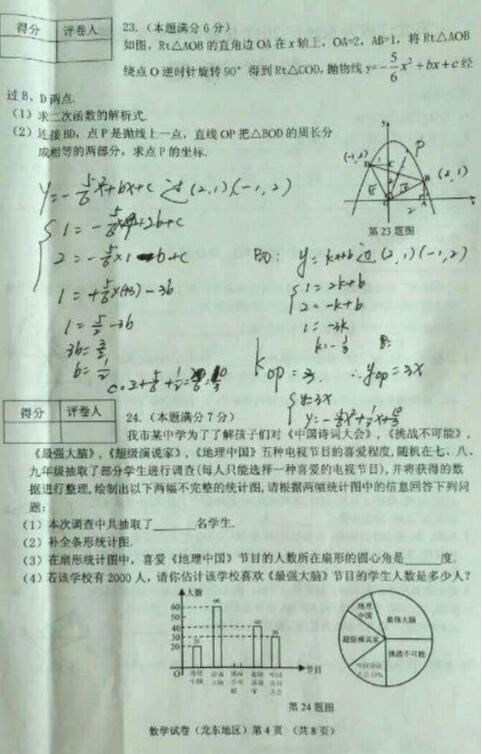 得分 评卷人
23.（本题满分6分）
如图，Rt△AOB的直角边OA在x轴上，OA=2，AB=1，将Rt△AOB
绕点O逆时针旋转90°得到Rt△COD，抛物线y=-5/6x²+bx+c经
过B、D两点.
（1）求二次函数的解析式.
（2）连接BD，点P是抛线上一点，直线OP把△BOD的周长分
成相等的两部分，求点P的坐标.
(-1,2)
P
(2,1)
第23题图
y=-5/6x²+bx+c 过(2,1)(-1,2)
2=-5/6×1-b+c
1=5/2-3b
3b=3/2
b=1/2
y=kx+b 过(2,1)(-1,2)
1=2k+b
2=-k+b
1=-3k
k=-1/3
kop=3 ∴yop=3x
y=3x
得分 评卷人
24.（本题满分7分）
我市某中学为了了解孩子们对《中国诗词大会》，《挑战不可能》，
《最强大脑》，《超级演说家》，《地理中国》五种电视节目的喜爱程度，随机在七、八、
九年级抽取了部分学生进行调查(每人只能选择一种喜爱的电视节目)，并将获得的数
据进行整理，绘制出以下两幅不完整的统计图，请根据两幅统计图中的信息回答下列问
题：
（1）本次调查中共抽取了______名学生.
（2）补全条形统计图.
（3）在扇形统计图中，喜爱《地理中国》节目的人数所在扇形的圆心角是_____度.
（4）若该学校有2000人，请你估计该学校喜欢《最强大脑》节目的学生人数是多少人？
人数
60
50
40
30
20
10
O
节目
地理中国
最强大脑
超级演说家
挑战不可能
第24题图
数学试卷（龙东地区）第4页（共8页）